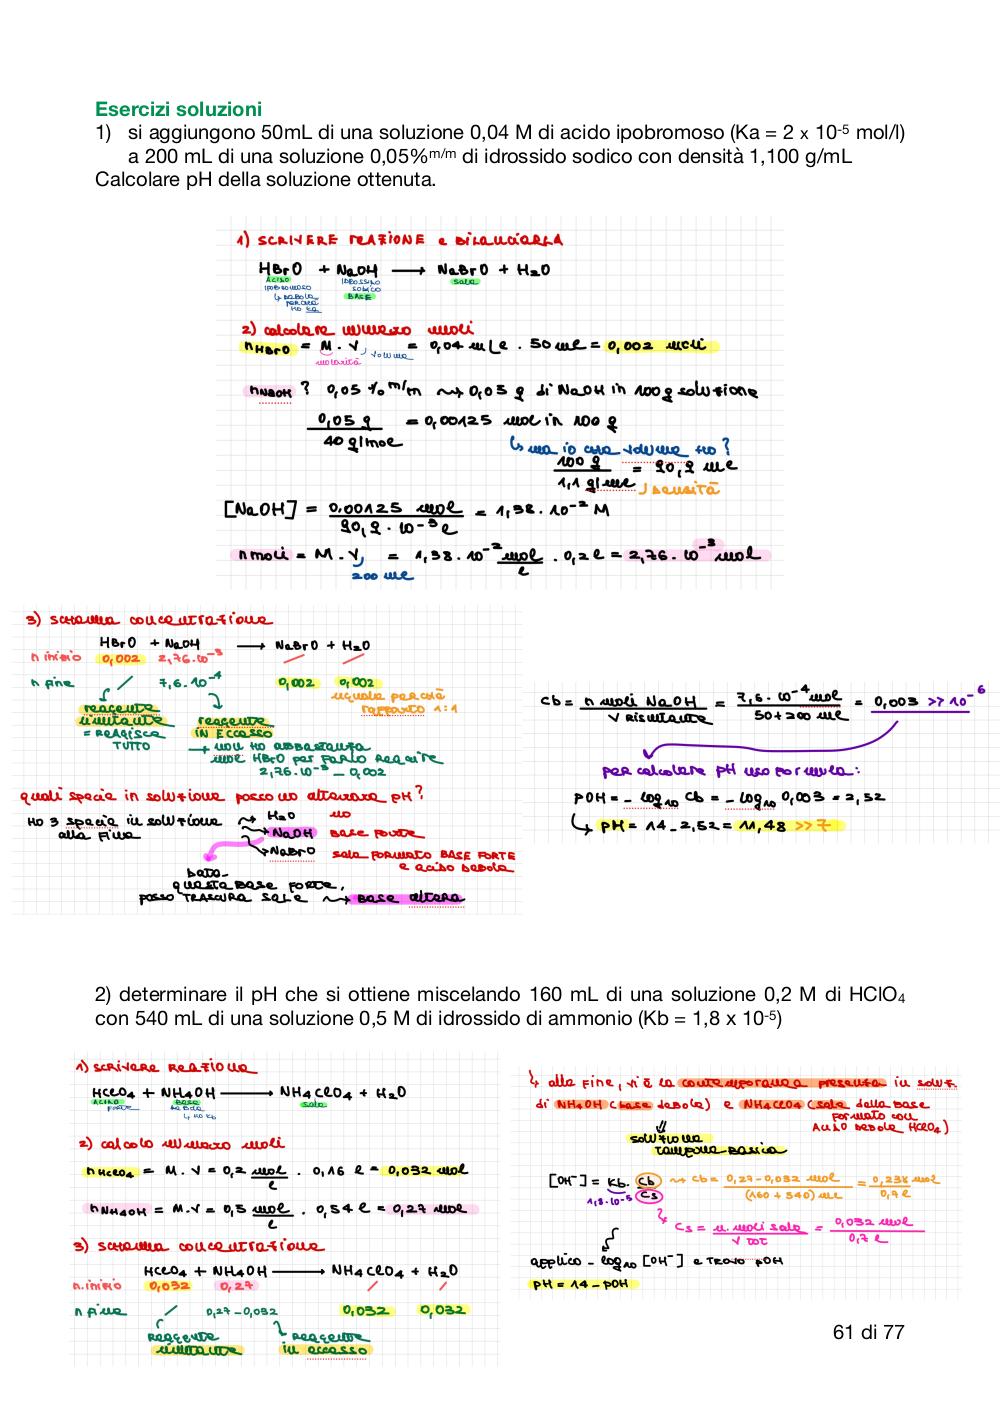 Esercizi soluzioni
1) si aggiungono 50mL di una soluzione 0,04 M di acido ipobromoso (Ka = 2 x 10-5 mol/l)
a 200 mL di una soluzione 0,05%m/m di idrossido sodico con densità 1,100 g/mL
Calcolare pH della soluzione ottenuta.
1) SCRIVERE REAZIONE e BILANCIARLA
HBrO + NaOH → NaBrO + H2O
ACIDO IPOBROMOSO
↳ DEBOLE PERCHÈ HO Ka
IDROSSIDO SODICO
BASE
sale
2) calcolare numero moli
nHBrO = M · V = 0,04 m/e · 50 ml = 0,002 moli
molarità
volume
nNaOH ? 0,05 % m/m ⇝ 0,05 g di NaOH in 100 g soluzione
0,05 g / 40 g/mol = 0,00125 mol in 100 g
↳ ma io che volume ho?
100 g / 1,1 g/ml = 90,9 ml
densità
[NaOH] = 0,00125 mol / 90,9 · 10-3 l = 1,38 · 10-2 M
n moli = M · V = 1,38 · 10-2 mol/l · 0,2 l = 2,76 · 10-3 mol
200 ml
3) schema concentrazione
HBrO + NaOH → NaBrO + H2O
n inizio 0,002 2,76·10-3 / /
n fine / 7,6·10-4 0,002 0,002
uguale perchè rapporto 1:1
reagente limitante = REAGISCE TUTTO
reagente IN ECCESSO
→ non ho abbastanza
mol HBrO per farlo reagire
2,76·10-3 – 0,002
quali specie in soluzione possono alterare pH?
Ho 3 specie in soluzione alla fine
H2O no
NaOH BASE FORTE
NaBrO sale FORMATO BASE FORTE
e acido debole
Data questa BASE FORTE,
posso TRASCURA SALE ⇝ BASE altera
Cb = n moli NaOH / V RISULTANTE = 7,6·10-4 mol / 50+200 ml = 0,003 >> 10-6
per calcolare pH uso formula:
pOH = – log10 Cb = – log10 0,003 = 2,52
↳ pH = 14 – 2,52 = 11,48 >> 7
2) determinare il pH che si ottiene miscelando 160 mL di una soluzione 0,2 M di HClO4
con 540 mL di una soluzione 0,5 M di idrossido di ammonio (Kb = 1,8 x 10-5)
1) scrivere reazione
HClO4 + NH4OH → NH4ClO4 + H2O
ACIDO FORTE
BASE DEBOLE
↳ HO Kb
sale
2) calcolo numero moli
nHClO4 = M · V = 0,2 mol/l · 0,16 l = 0,032 mol
nNH4OH = M·V = 0,5 mol/l · 0,54 l = 0,27 mol
3) schema concentrazione
HClO4 + NH4OH → NH4ClO4 + H2O
n.inizio 0,032 0,27 / /
n fine / 0,27–0,032 0,032 0,032
reagente limitante
reagente in eccesso
↳ alla fine, vi è la contemporanea presenza in soluz.
di NH4OH (base debole) e NH4ClO4 (sale della base
formato con
Acido debole HClO4)
soluzione tampone basica
[OH-] = Kb · Cb / Cs
1,8·10-5
⇝ Cb = 0,27–0,032 mol / (160 + 540) ml = 0,238 mol / 0,7 l
Cs = n. moli sale / V tot = 0,032 mol / 0,7 l
applico – log10 [OH-] e trovo pOH
pH = 14 – pOH
61 di 77